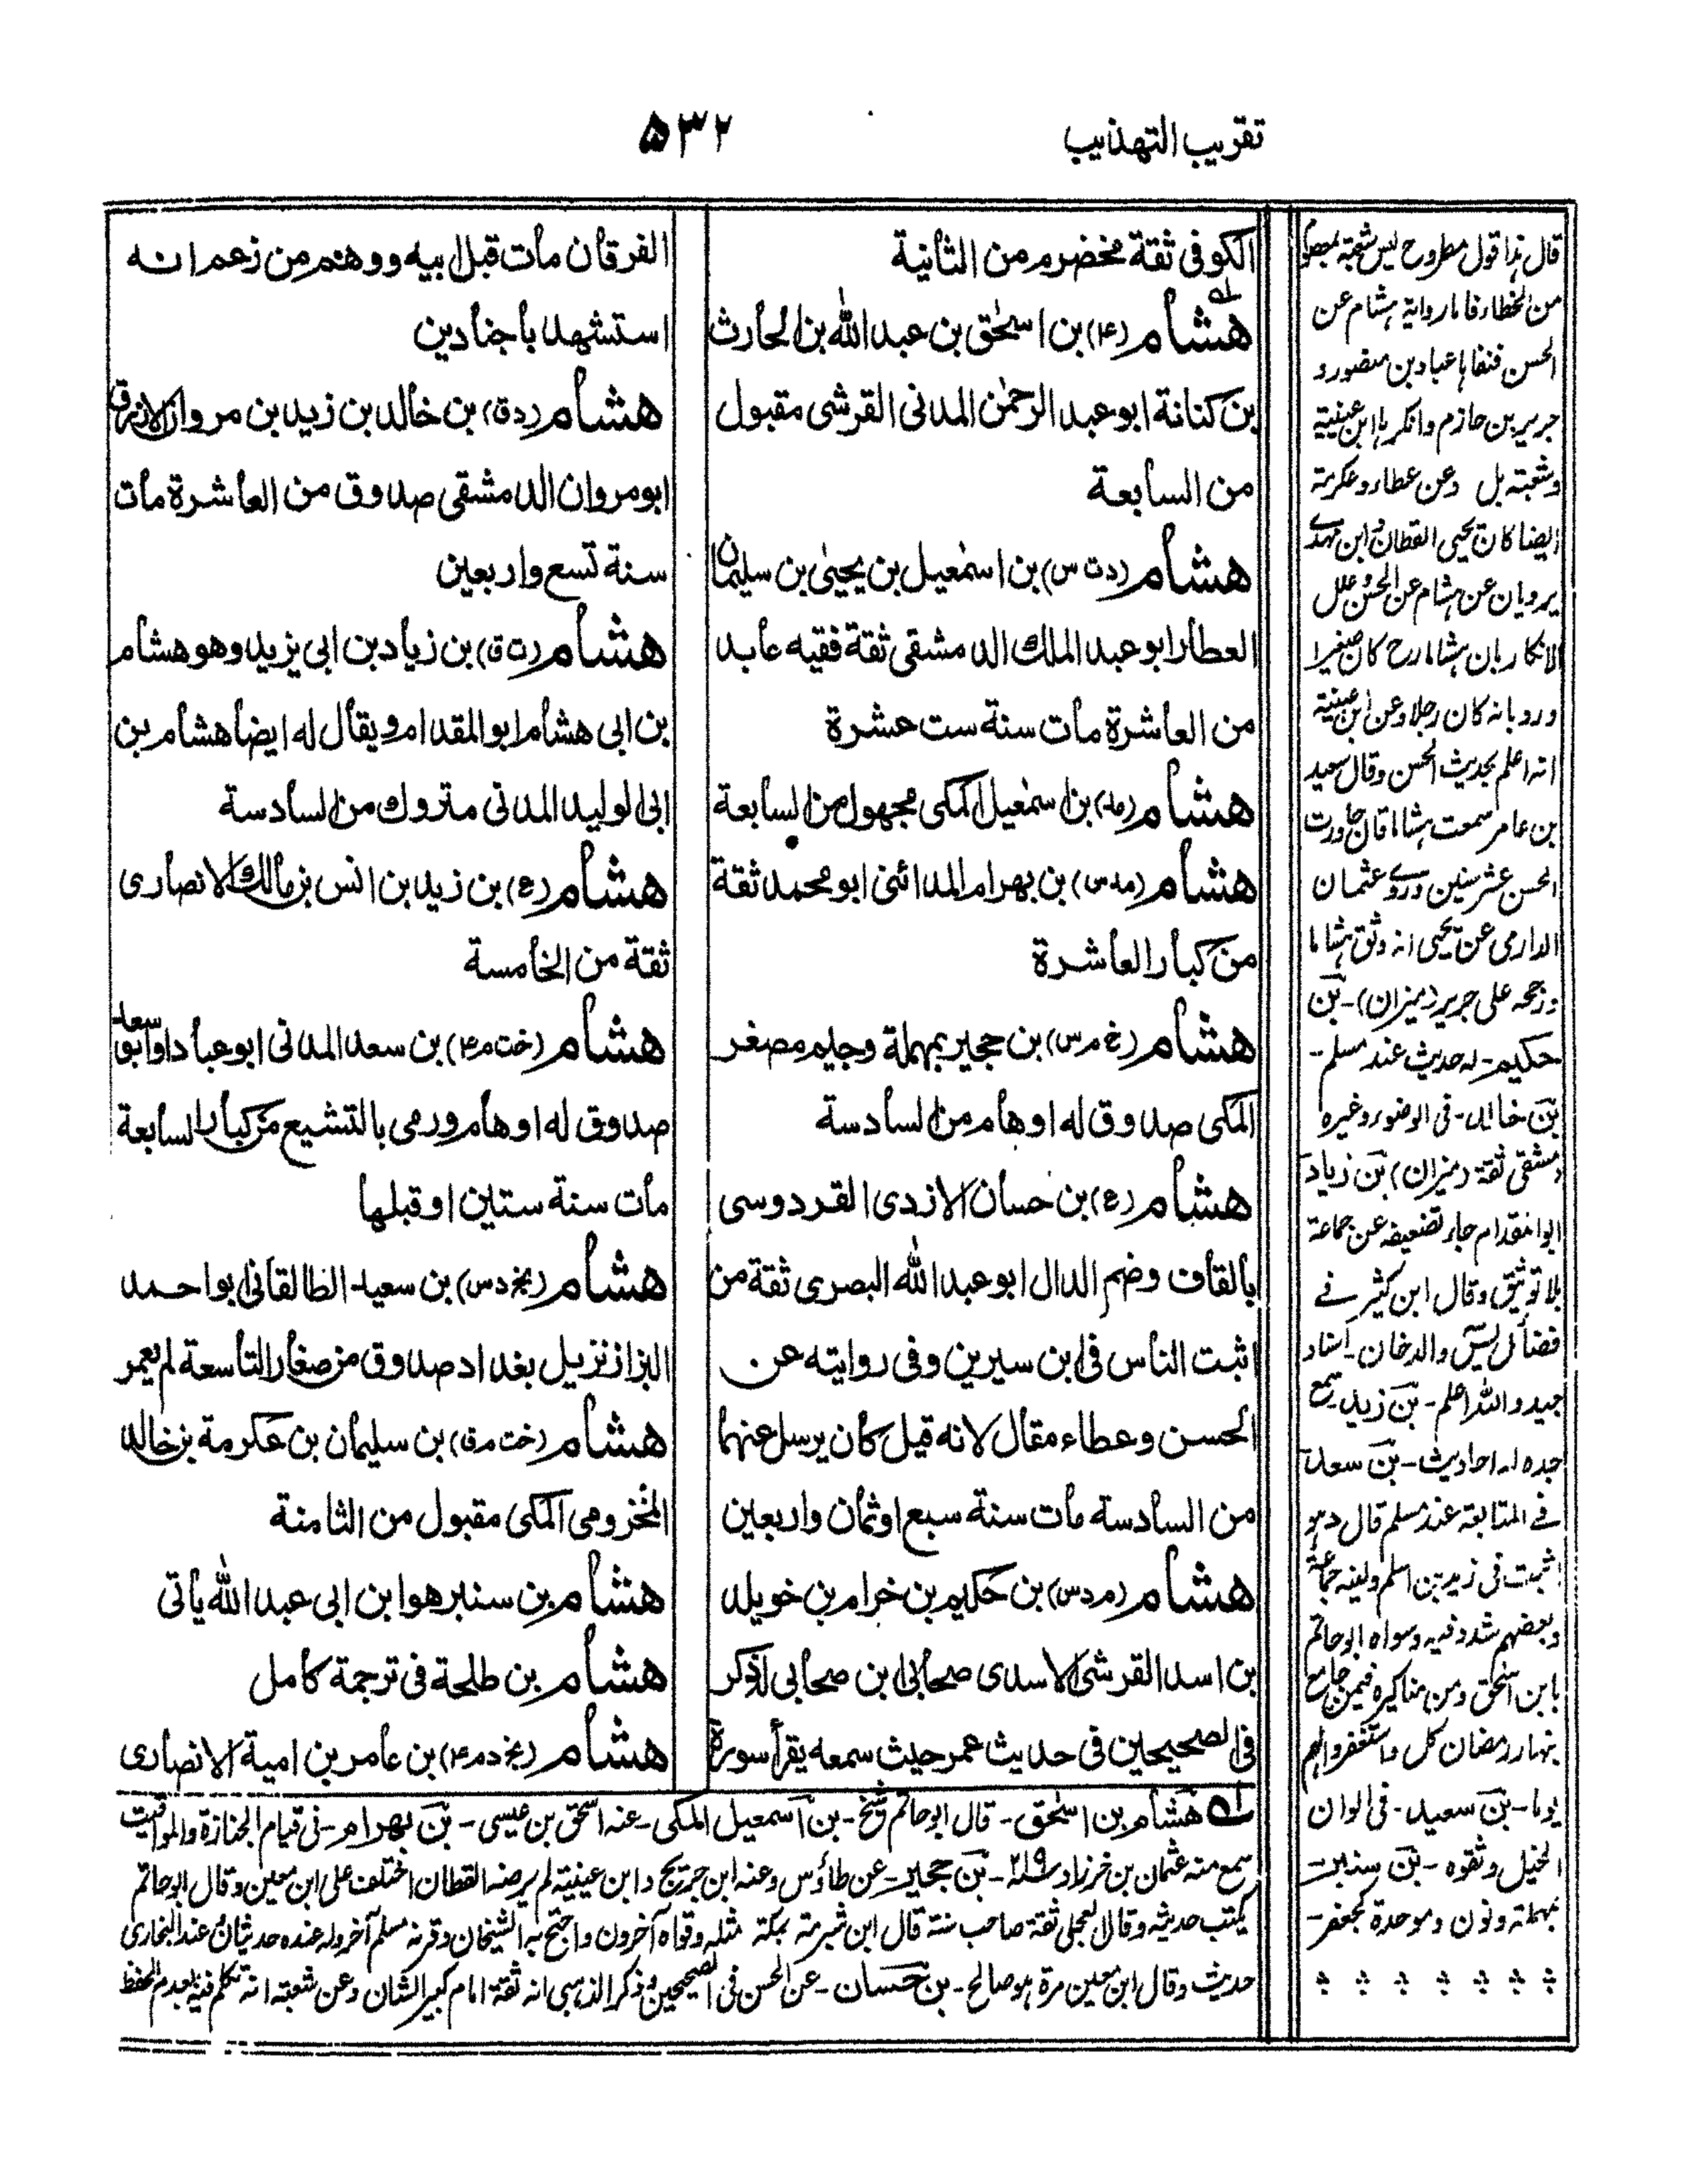 تقريب التهذيب
٥٣٢
الكوفى ثقة مخضرم من الثانية
هشام (٤) بن اسحٰق بن عبد الله بن الحارث
بن كنانة ابو عبد الرحمٰن المدنى القرشى مقبول
من السابعة
هشام (د ت س) بن اسمٰعيل بن يحيىٰ بن سليمان
العطار ابو عبد الملك الدمشقى ثقة فقيه عابد
من العاشرة مات سنة ست عشرة
هشام (مد) بن اسمٰعيل المكى مجهول من السابعة
هشام (مد س) بن بهرام المدائنى ابو محمد ثقة
من كبار العاشرة
هشام (خ م س) بن حجير بمهملة وجيم مصغر
المكى صدوق له اوهام من السادسة
هشام (ع) بن حسان الازدى القردوسى
بالقاف وضم الدال ابو عبد الله البصرى ثقة من
اثبت الناس فى ابن سيرين وفى روايته عن
الحسن وعطاء مقال لانه قيل كان يرسل عنهما
من السادسة مات سنة سبع او ثمان واربعين
هشام (م د س) بن حكيم بن خرام بن خويلد
بن اسد القرشى الاسدى صحابى ابن صحابى له ذكر
فى الصحيحين فى حديث عمر حيث سمعه يقرأ سورة
الفرقان مات قبل ابيه ووهم من زعم انه
استشهد باجنادين
هشام (د ق) بن خالد بن زيد بن مروان الازرق
ابو مروان الدمشقى صدوق من العاشرة مات
سنة تسع واربعين
هشام (ت ق) بن زياد بن ابى يزيد وهو هشام
بن ابى هشام ابو المقدام ويقال له ايضا هشام بن
ابى الوليد المدنى متروك من السادسة
هشام (ع) بن زيد بن انس بن مالك الانصارى
ثقة من الخامسة
هشام (خت م ٤) بن سعد المدنى ابو عباد او ابو سعد
صدوق له اوهام ورمى بالتشيع من كبار السابعة
مات سنة ستين او قبلها
هشام (بخ د س) بن سعيد الطالقانى ابو احمد
البزاز نزيل بغداد صدوق من صغار التاسعة لم يعمر
هشام (خت م ق) بن سليمان بن عكرمة بن خالد
المخزومى المكى مقبول من الثامنة
هشام بن سنبر هو ابن ابى عبد الله ياتى
هشام بن طلحة فى ترجمة كامل
هشام (بخ د م ٤) بن عامر بن امية الانصارى
له هشام بن اسحٰق - قال ابو حاتم شيخ - بن اسمعيل المكى - عنه اسحٰق بن عيسى - بن بهرام - فى قيام الجنازة والمواقيت
سمع منه عثمان بن خرزاد سنة ٢١٩ - بن حجير - عن طاؤس وعنه ابن جريج وابن عيينة لم يرضه القطان اختلف على ابن معين وقال ابو حاتم
يكتب حديثه وقال العجلى ثقة صاحب سنة قال ابن شبرمة بمكة مثله وقواه آخرون واحتج به الشيخان وقرنه مسلم آخر وله عنده حديثان عند البخارى
حديث وقال ابن معين مرة هو صالح - بن حسان - عن الحسن فى الصحيحين وذكر الذهبى انه ثقة امام كبير الشان وعن شعبة انه تكلم فيه لعدم الحفظ
قال هذا قول مطروح ليس شعبة بمعصوم
من الخطاء فاما رواية هشام عن
الحسن فنفاها عباد بن منصور و
جرير بن حازم وانكرها ابن عيينة
وشعبة بل وعن عطاء وعكرمة
ايضا كان يحيى القطان وابن مهدے
يرويان عن هشام عن الحسن علل
الانكار بان هشاما رح كان صغيرا
ورد بانه كان رجلا وعن ابن عيينة
انه اعلم بحديث الحسن وقال سعيد
بن عامر سمعت هشاما قال جاورت
الحسن عشر سنين وروے عثمان
الدارمى عن يحيى انه وثق هشاما
ورجحه على جرير (ميزان) - بن
حكيم - له حديث عند مسلم -
بن خالد - فى الوضوء وغيره
دمشقى ثقة (ميزان) بن زياد
ابو المقدام جاء تضعيفه عن جماعة
بلا توثيق وقال ابن كثير فے
فضائل يٰسٓ والدخان - اسناد
جيد والله اعلم - بن زيد سمع
جده له احاديث - بن سعد
فے المتابعة عند مسلم قال د هو
اثبت فى زيد بن اسلم ولينه جماعة
وبعضهم شدد فيه وسواه ابو حاتم
بابن اسحٰق ومن مناكيره فيمن جامع
بنهار رمضان كل واستغفر وصم
يوما - بن سعيد - فى الوان
الخيل وثقوه - بن سنبر -
بمهملة ونون وموحدة كجعفر -